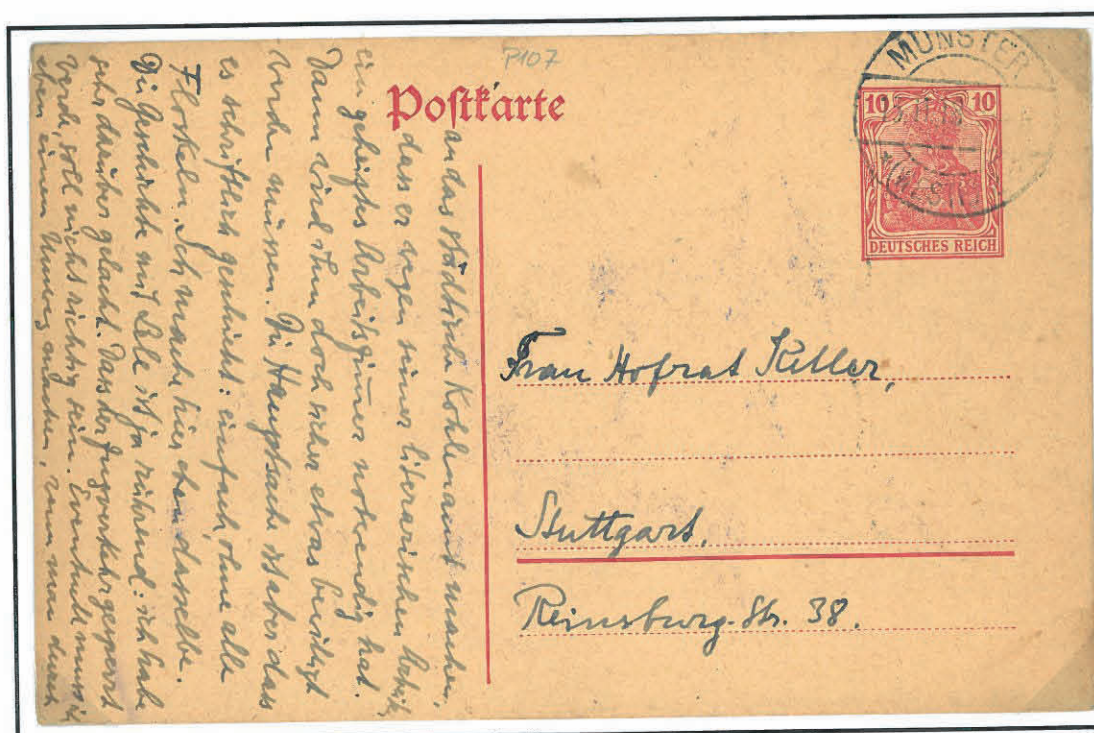 P107
Postkarte
MÜNSTER
(WESTF.)
10 10
DEUTSCHES REICH
Frau Hofrat Keller,
Stuttgart,
Reinsburg-Str. 38.
an das städtische Kohlenamt machen,
dass er wegen seiner literarischen
ein geheiztes Arbeitszimmer notwendig hat.
Dann wird ihm doch sicher etwas bewilligt
werden müssen. Die Hauptsache ist aber dass
es schriftlich geschieht: einfach, ohne alle
Floskeln. Ich mache hier dasselbe.
Die Geschichte mit Lele ist ja rührend: ich habe
sehr darüber gelacht. Dass der Zugverkehr gesperrt
werde, soll nicht richtig sein. Eventuell muss ich
eben einen Umweg machen, wenn man durch